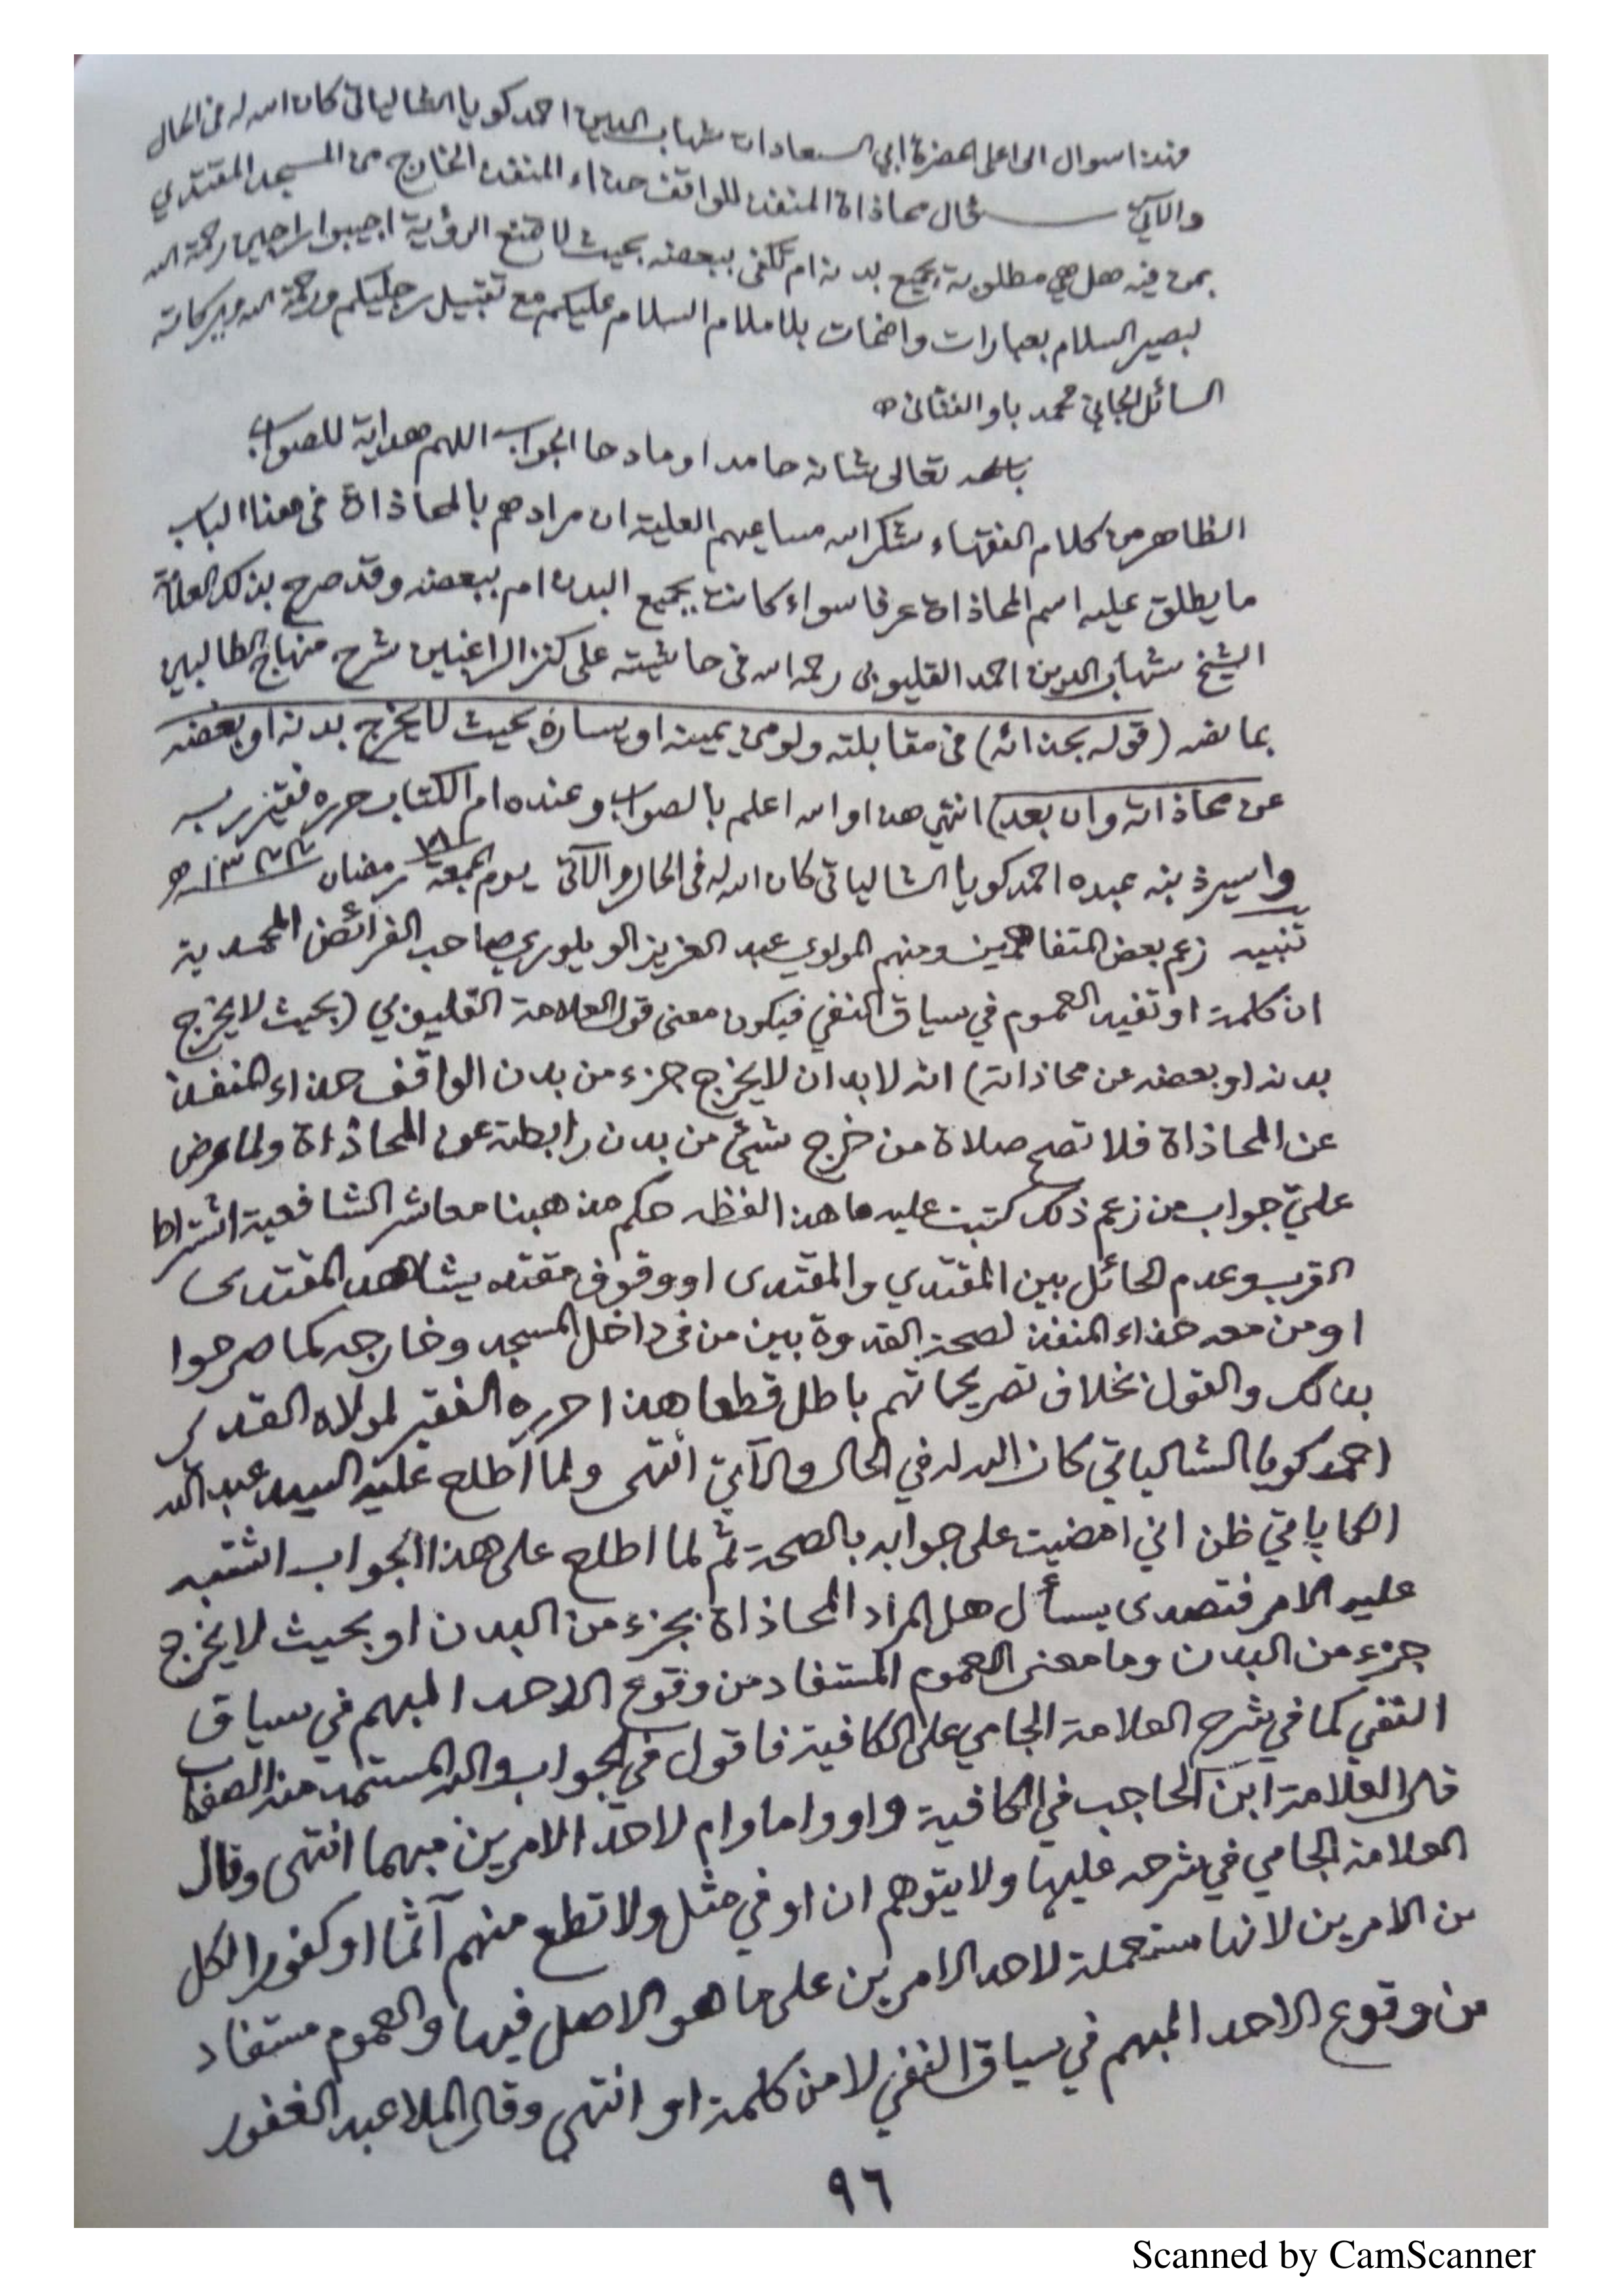 هذا سوال الى اعلى الحضرة ابي السعادات شهاب الدين احمد كويا الشالياتي كان الله له في الحال
والآتي قال محاذاة المنفذ للواقف حذاء المنفذ الخارج من المسجد المقتدي
بمن فيه هل هي مطلوبة بجميع بدنه ام تكفى ببعضه بحيث لا تمنع الرؤية اجيبوا رحمة الله
السلام بعبارات واضحات بلا ملام السلام عليكم مع تقبيل رجليكم ورحمة الله وبركاته
السائل الجاني محمد باو
باسمه تعالى شانه حامدا ومادحا الجواب اللهم هداية للصواب
الظاهر من كلام الفقهاء شكر الله مساعيهم العلية ان مرادهم بالمحاذاة فى هذا الباب
ما يطلق عليه اسم المحاذاة عرفا سواء كانت بجميع البدن ام ببعضه وقد صرح بذلك العلامة
الشيخ شهاب الدين احمد القليوبى رحمه الله فى حاشيته على كنز الراغبين شرح منهاج الطالبين
بما نصه (قوله بحذائه) فى مقابلته ولو من يمينه او يساره بحيث لا يخرج بدنه او بعضه
عن محاذاته وان بعد) انتهى هذا والله اعلم بالصواب وعنده ام الكتاب حرره فقير ربه
واسير ذنبه عبده احمد كويا الشالياتى كان الله له فى الحال والآتى يوم الجمعة رمضان
تنبيه زعم بعض المتفاهمين ومنهم المولوي عبد العزيز الويلوري صاحب الفرائض المحمدية
ان كلمة او تفيد العموم في سياق النفي فيكون معنى قول العلامة القليوبي (بحيث لا يخرج
بدنه او بعضه عن محاذاته) انه لا بد ان لا يخرج جزء من بدن الواقف حذاء المنفذ
عن المحاذاة فلا تصح صلاة من خرج شئ من بدن رابطته عن المحاذاة ولما عرض
عليّ جواب من زعم ذلك كتبت عليه ما هذا لفظه حكم مذهبنا معاشر الشافعية اشتراط
القرب وعدم الحائل بين المقتدي والمقتدى او وقوف مقتد يشاهد المقتدى
او من معه حذاء المنفذ لصحة القدوة بين من فى داخل المسجد وخارجه كما صرحوا
بذلك والقول بخلاف تصريحاتهم باطل قطعا هذا حرره الفقير لمولاه القدير
احمد كويا الشالياتي كان الله له في الحال والآتي انتهى ولما اطلع عليه السيد عبد الله
ظن اني امضيت على جوابه بالصحة ثم لما اطلع على هذا الجواب اشتبه
عليه الامر فتصدى يسأل هل المراد المحاذاة بجزء من البدن او بحيث لا يخرج
جزء من البدن وما معنى العموم المستفاد من وقوع الاحد المبهم في سياق
النفي كما في شرح العلامة الجامي على الكافية فاقول في الجواب والله المستمد منه الصواب
قال العلامة ابن الحاجب في الكافية واو واما وام لاحد الامرين مبهما انتهى وقال
العلامة الجامي في شرحه عليها ولا يتوهم ان او في مثل ولا تطع منهم آثما او كفورا لكل
من الامرين لانها مستعملة لاحد الامرين على ما هو الاصل فيها والعموم مستفاد
من وقوع الاحد المبهم في سياق النفي لا من كلمة او انتهى وقال الملا عبد الغفور
٩٦
Scanned by CamScanner